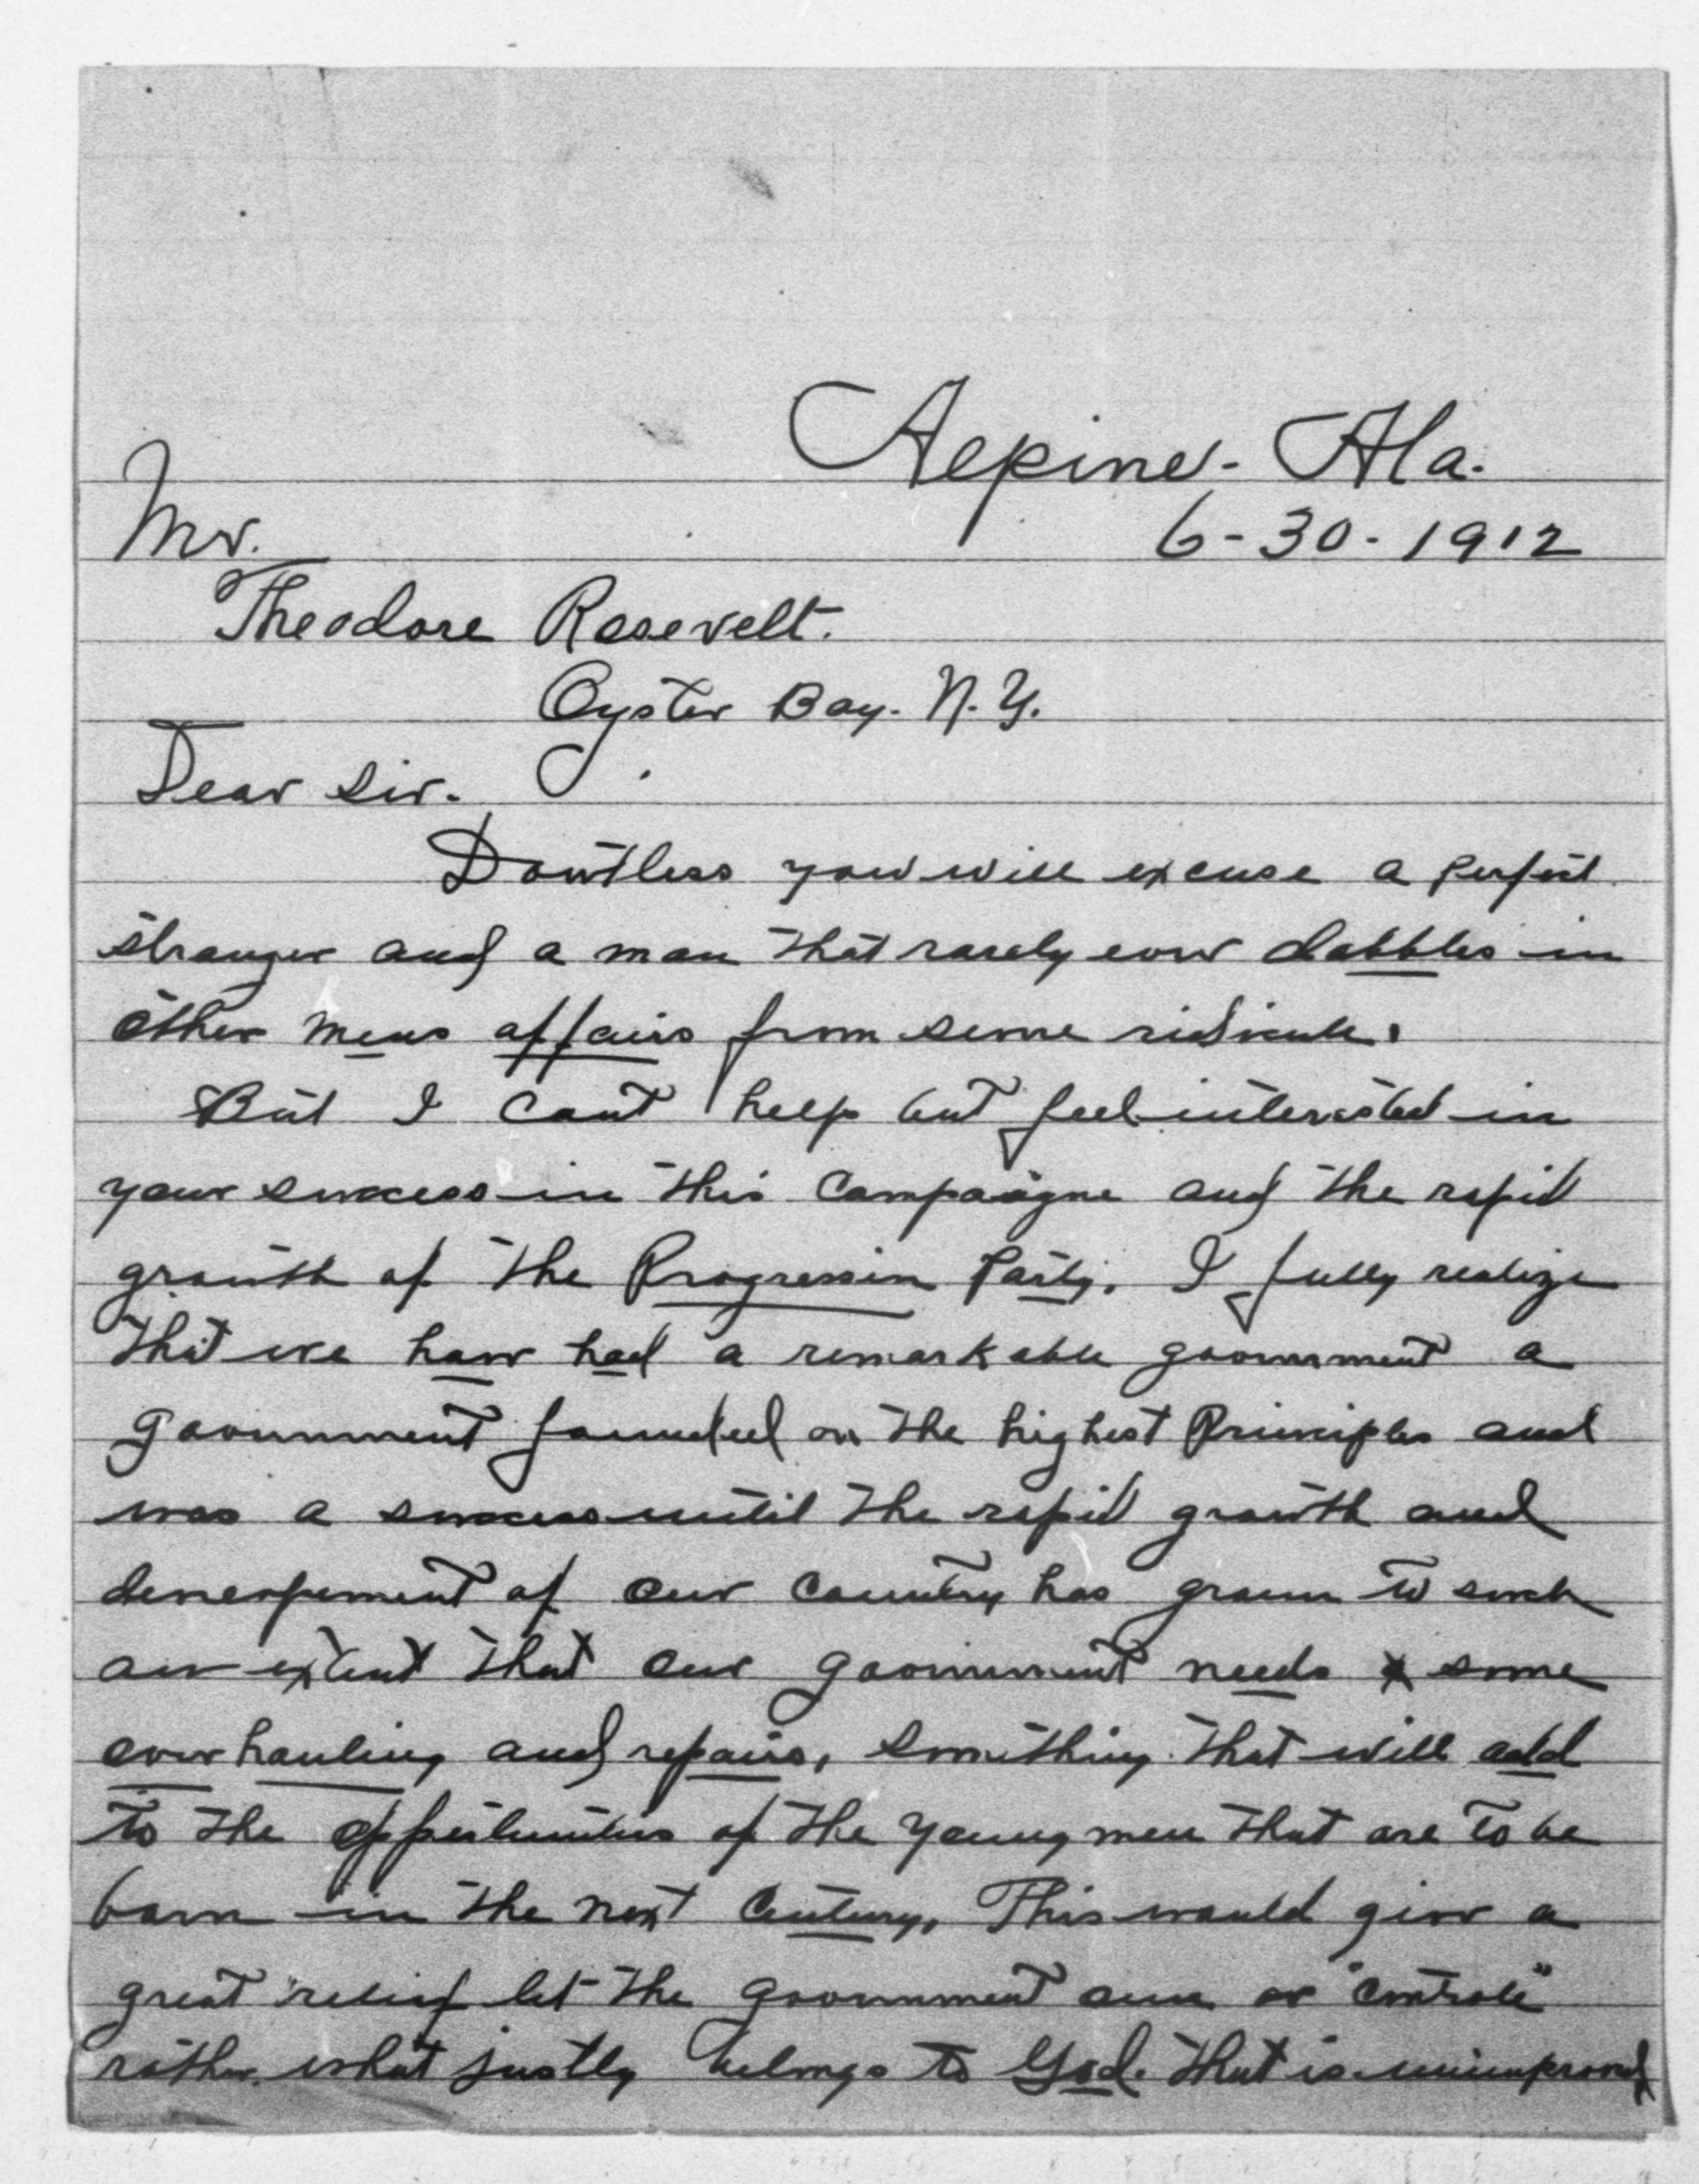 Alpine - Ala.
6-30-1912
Mr.
Theodore Rosevelt.
Oyster Bay. N.Y.
Dear Sir.
Doutless you will excuse a perfect
stranger and a man that rarely ever dabbles in
other mens affairs from some ridicule.
But I cant help but feel interested in
your success in this Campaigne and the rapid
growth of the Progressive Party. I fully realize
that we have had a remarkable government a
government founded on the highest Principles and
was a success until the rapid growth and
of our Country has grown to such
an extent that our government needs some
over hauling and repairs, something that will add
to the oppertunities of the young men that are to be
born in the next Century, This would give a
great relief let the government own or "controle"
rather what justly belongs to God. that is unimproved